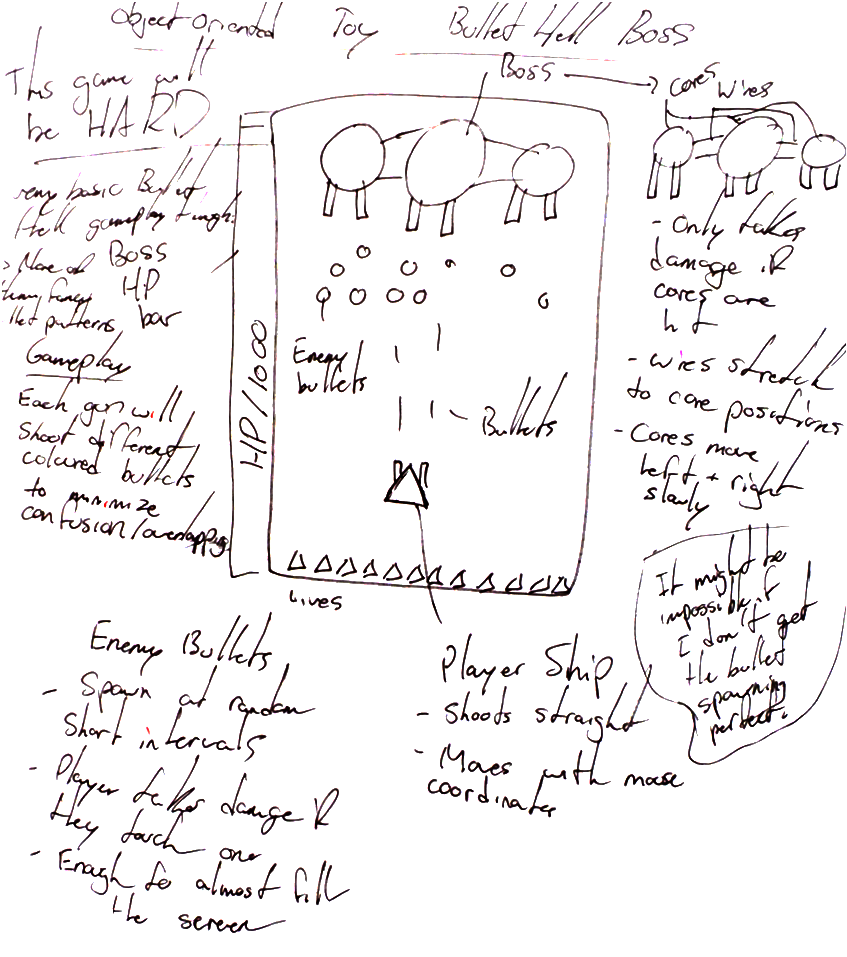 Object Oriented Toy Bullet Hell Boss
This game will
be HARD
very basic Bullet
Hell gameplay though.
None of
fancy
bullet patterns
Boss
HP
bar
HP/1000
Gameplay
Each gun will
shoot different
coloured bullets
to minimize
confusion/overlapping.
Boss
Enemy
bullets
Bullets
Lives
cores
wires
- Only takes
damage if
cores are
hit
- wires stretch
to core positions
- Cores move
left + right
slowly
It might be
impossible if
I don't get
the bullet
spawning
perfect.
Enemy Bullets
- Spawn at random
Short intervals
- Player takes damage if
they touch one
- Enough to almost fill
the screen
Player Ship
- Shoots straight
- Moves with mouse
coordinates